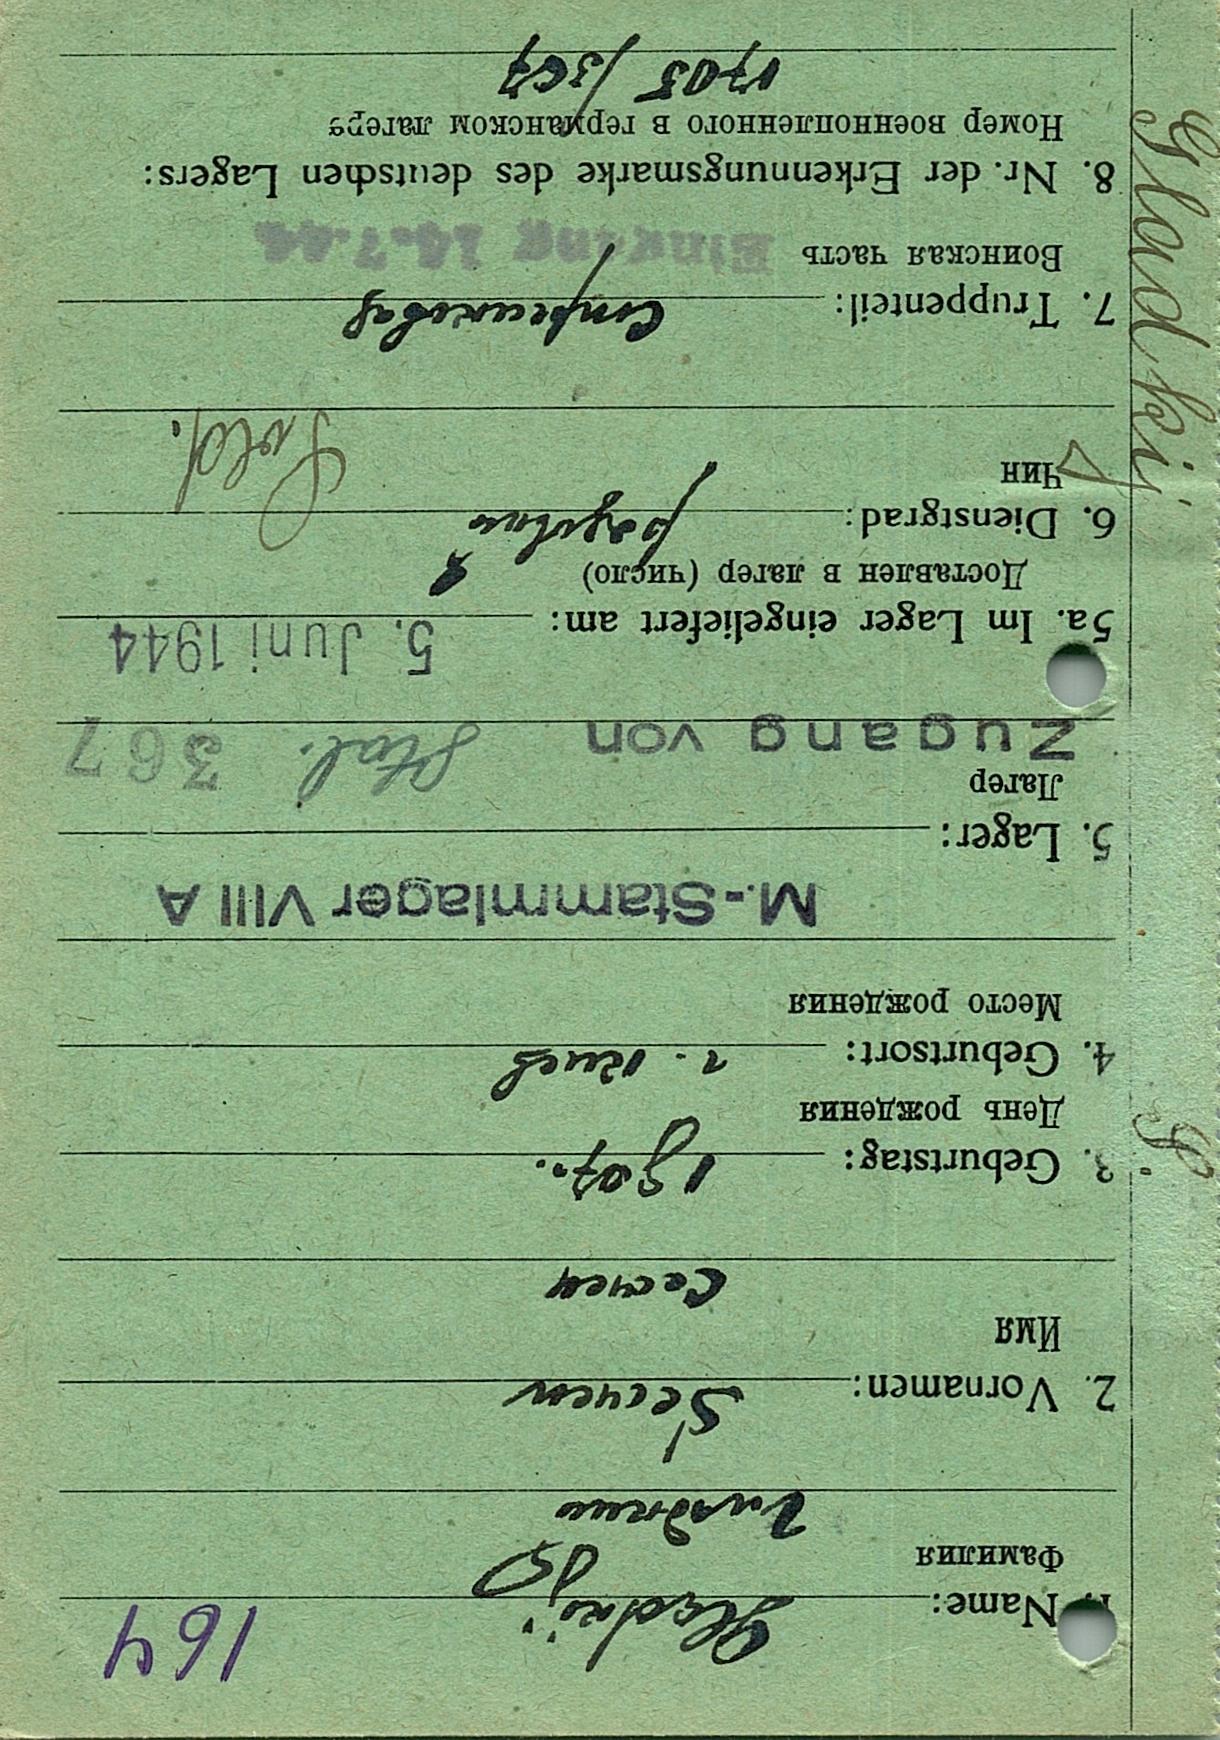 164
1. Name: Gladkij
Фамилия
Гладкий
2. Vornamen: Semen
Имя
Семен
3. Geburtstag: 1907г.
День рождения
4. Geburtsort: г. Киев
Место рождения
M.-Stammlager VIII A
5. Lager:
Лагер
Zugang von Stal. 367
5a. Im Lager eingeliefert am: 5. Juni 1944
Доставлен в лагер (число)
6. Dienstgrad: рядовой
Чин
Sold.
7. Truppenteil:
Воинская часть Eingang 14.7.44
8. Nr. der Erkennungsmarke des deutschen Lagers:
Номер военнопленного в германском лагере
1705/367
Gladkij
S.